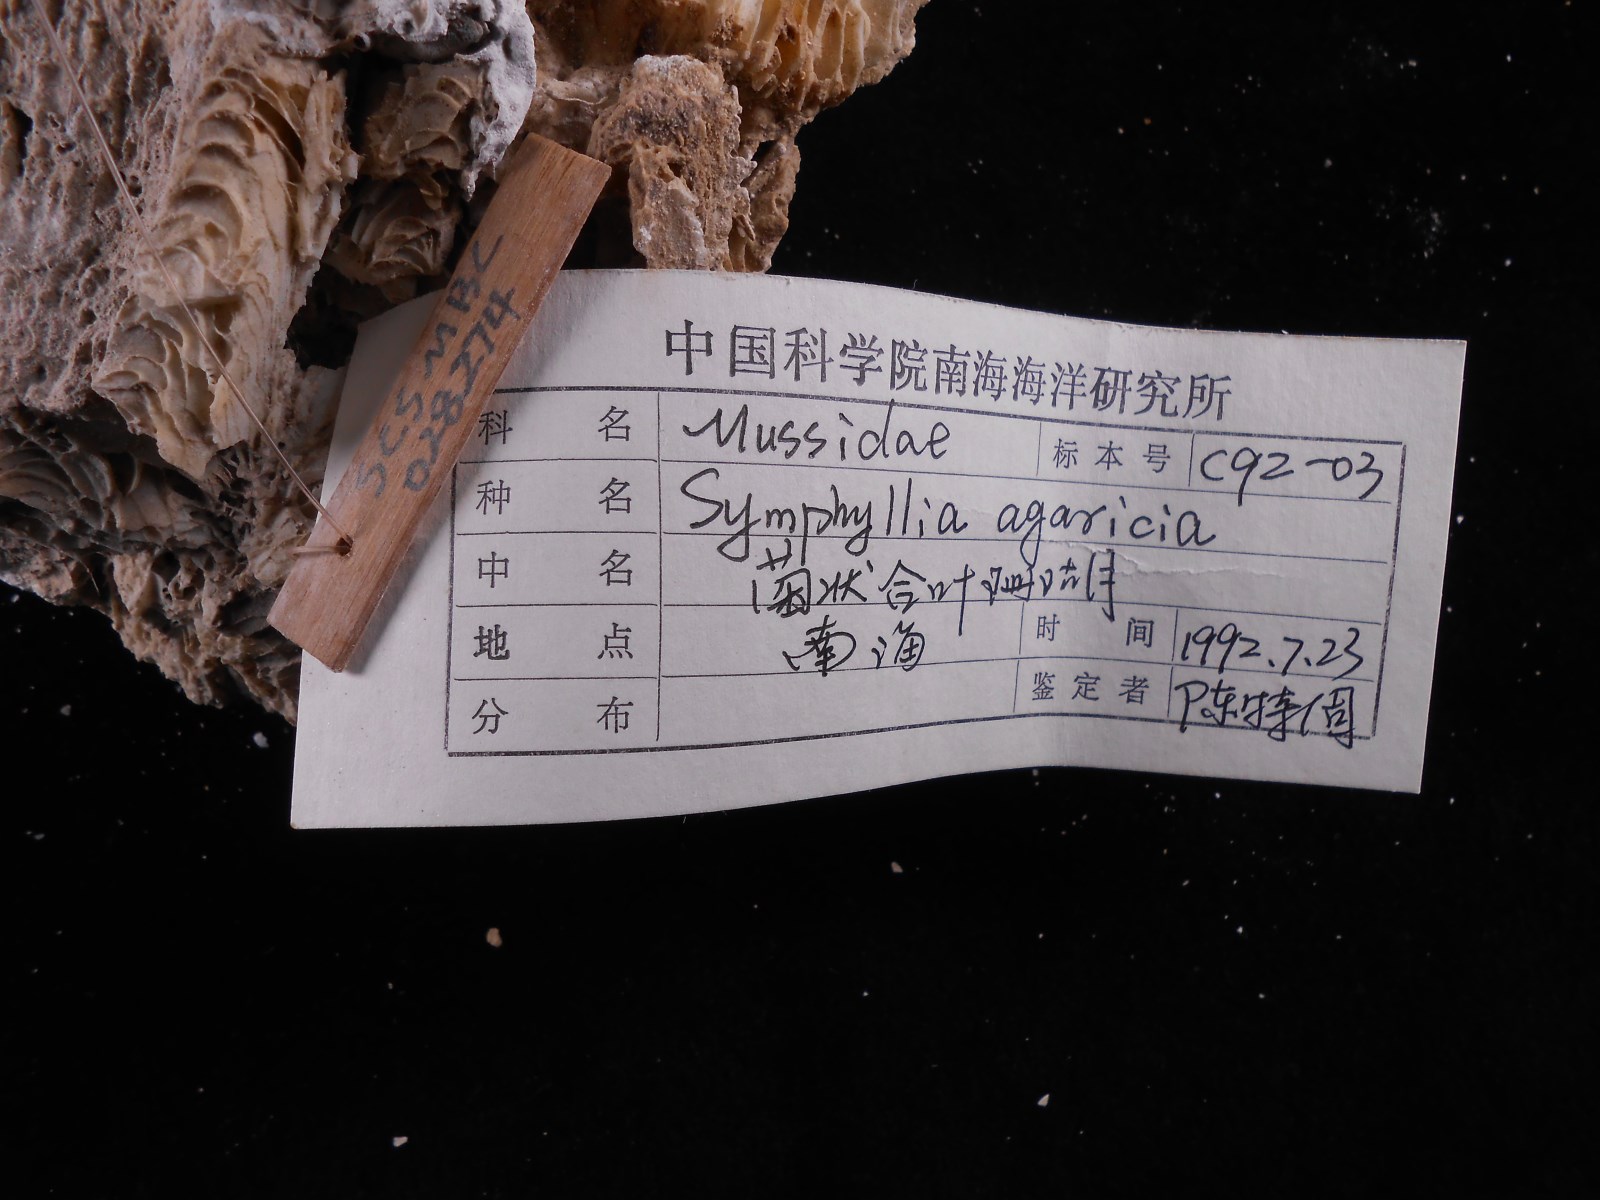 SCSMBC
028274
中国科学院南海海洋研究所
科名 Mussidae 标本号 C92-03
种名 Symphyllia agaricia
中名 菌状合叶珊瑚
地点 南海 时间 1992.7.23
分布 鉴定者 陈特